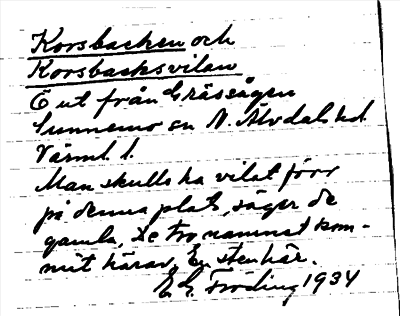 Korsbacken och
Korsbacksvilan
Ö ut från Gråssågen
Sunnemo sn N. Älvdals hd.
Värml. l.
Man skulle ha vilat förr
på denna plats, säger de
gamla, De tro namnet kom-
mit härav. En stenhär.
E. G. Fröding 1934